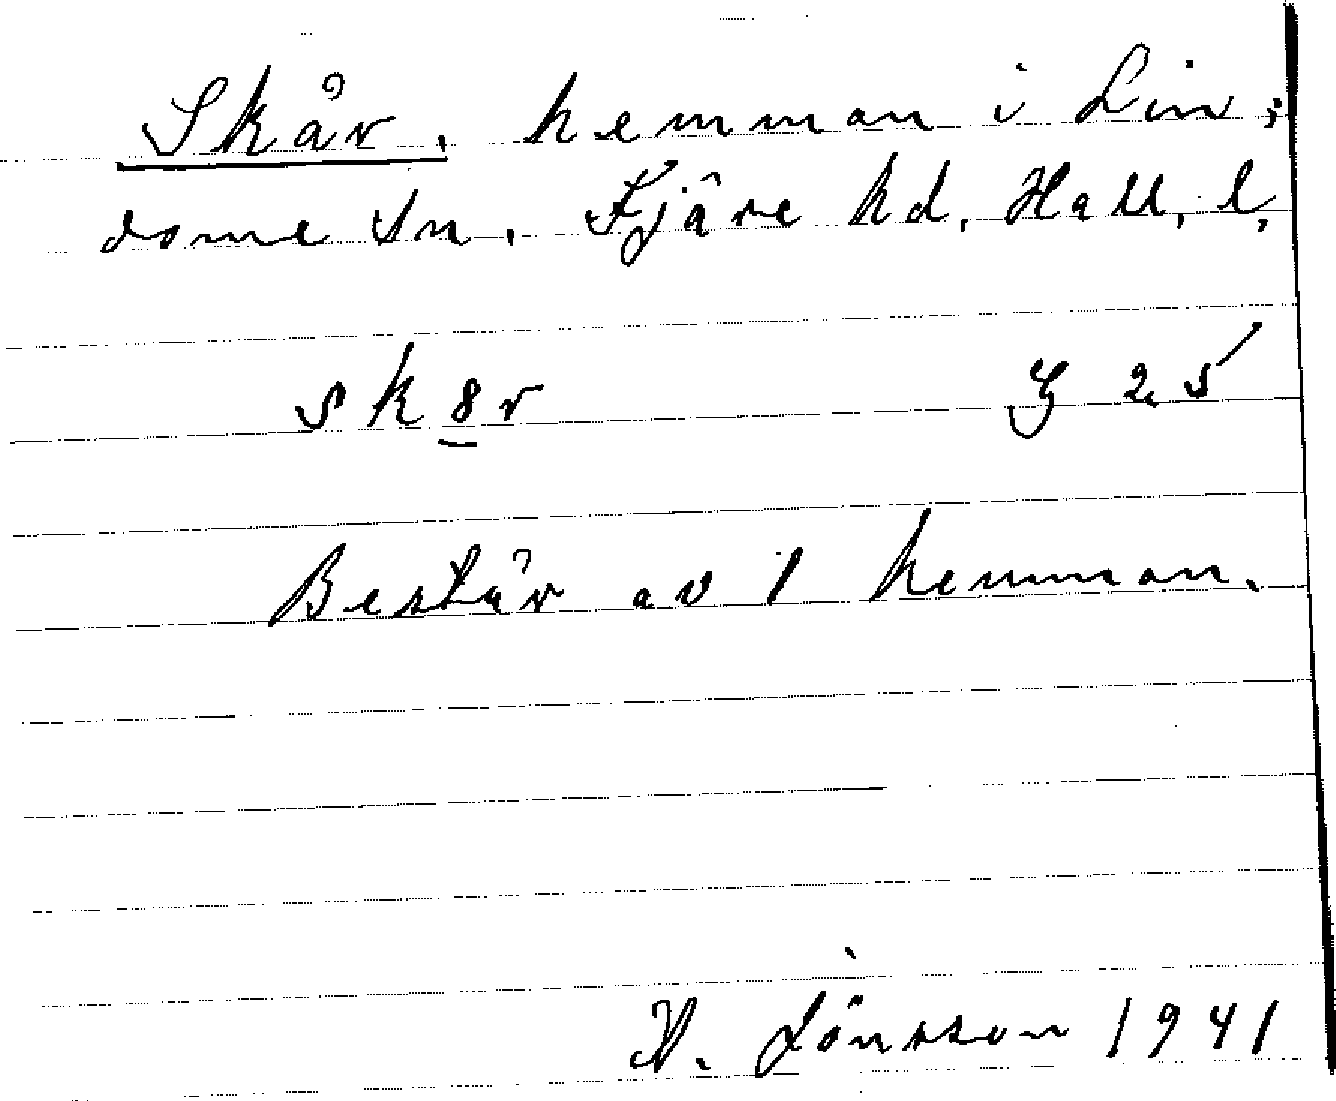 Skår, hemman i Lin-
dome sn. Fjäre hd. Hall. l.
sk8r
Består av 1 hemman.
H. Jönsson 1941